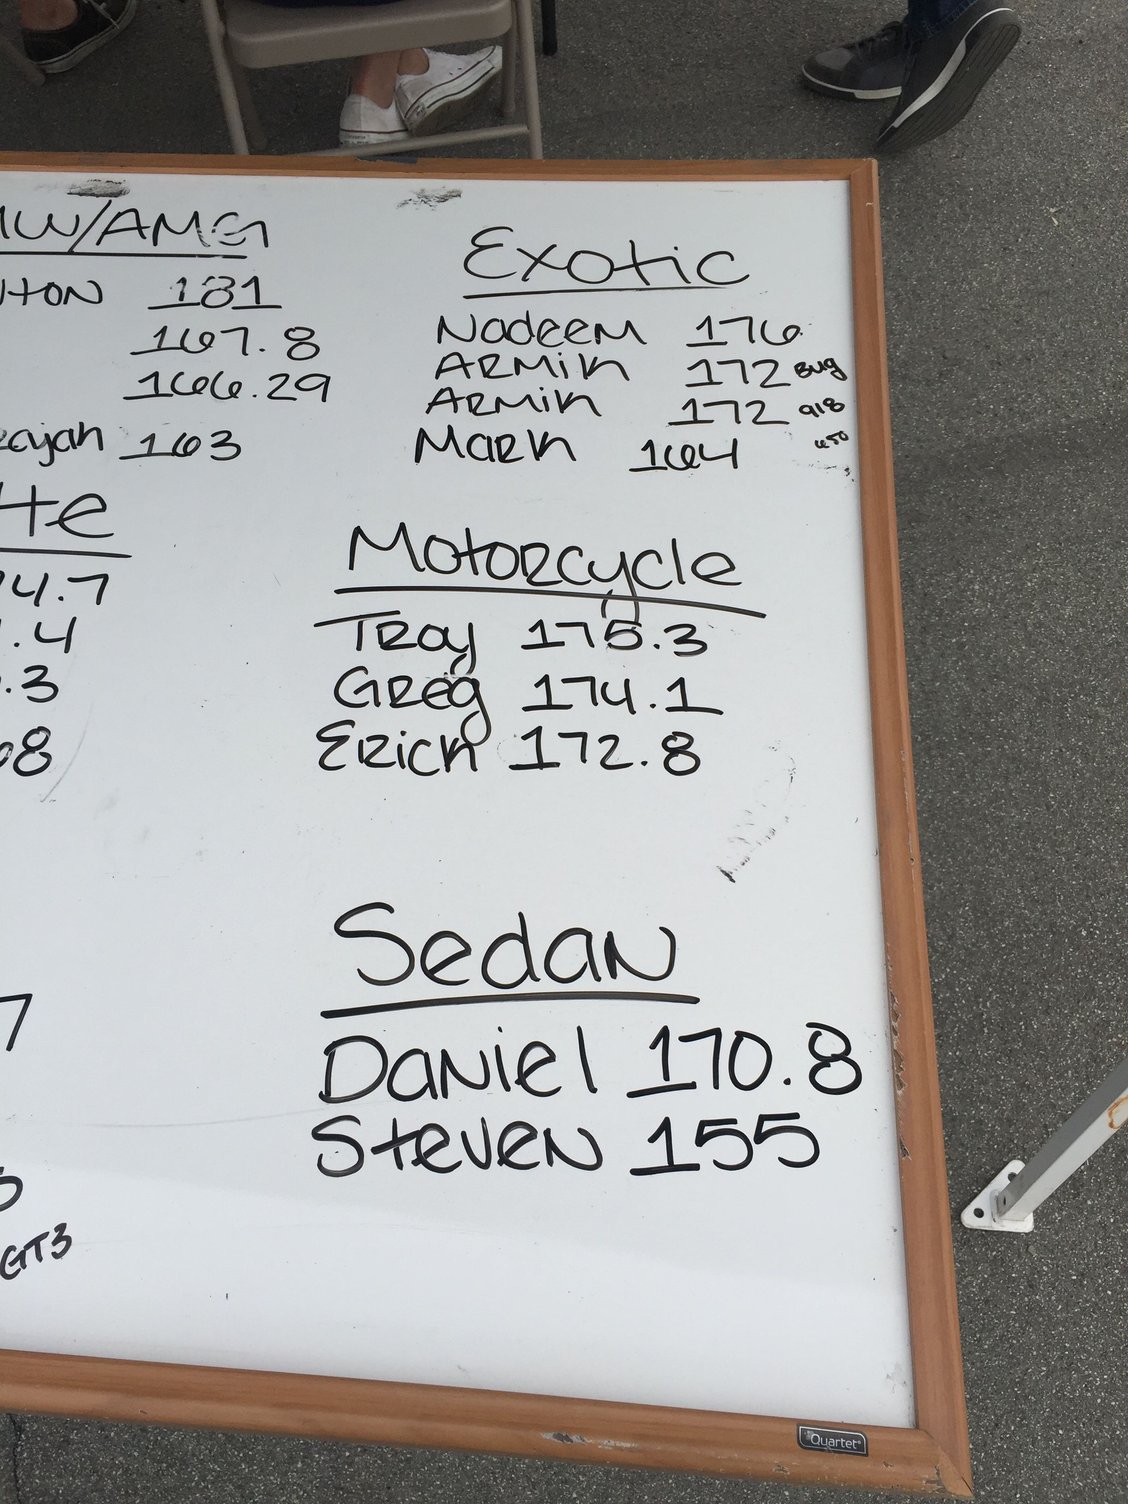 MW/AMG
181
167.8
166.29
163
Exotic
Nadeem 176
ARMIN 172 Bug
ARMIN 172 918
MARK 164
4.7
.4
.3
Motorcycle
Troy 175.3
Greg 174.1
Erich 172.8
8
7
GT3
Sedan
Daniel 170.8
Steven 155
Quartet